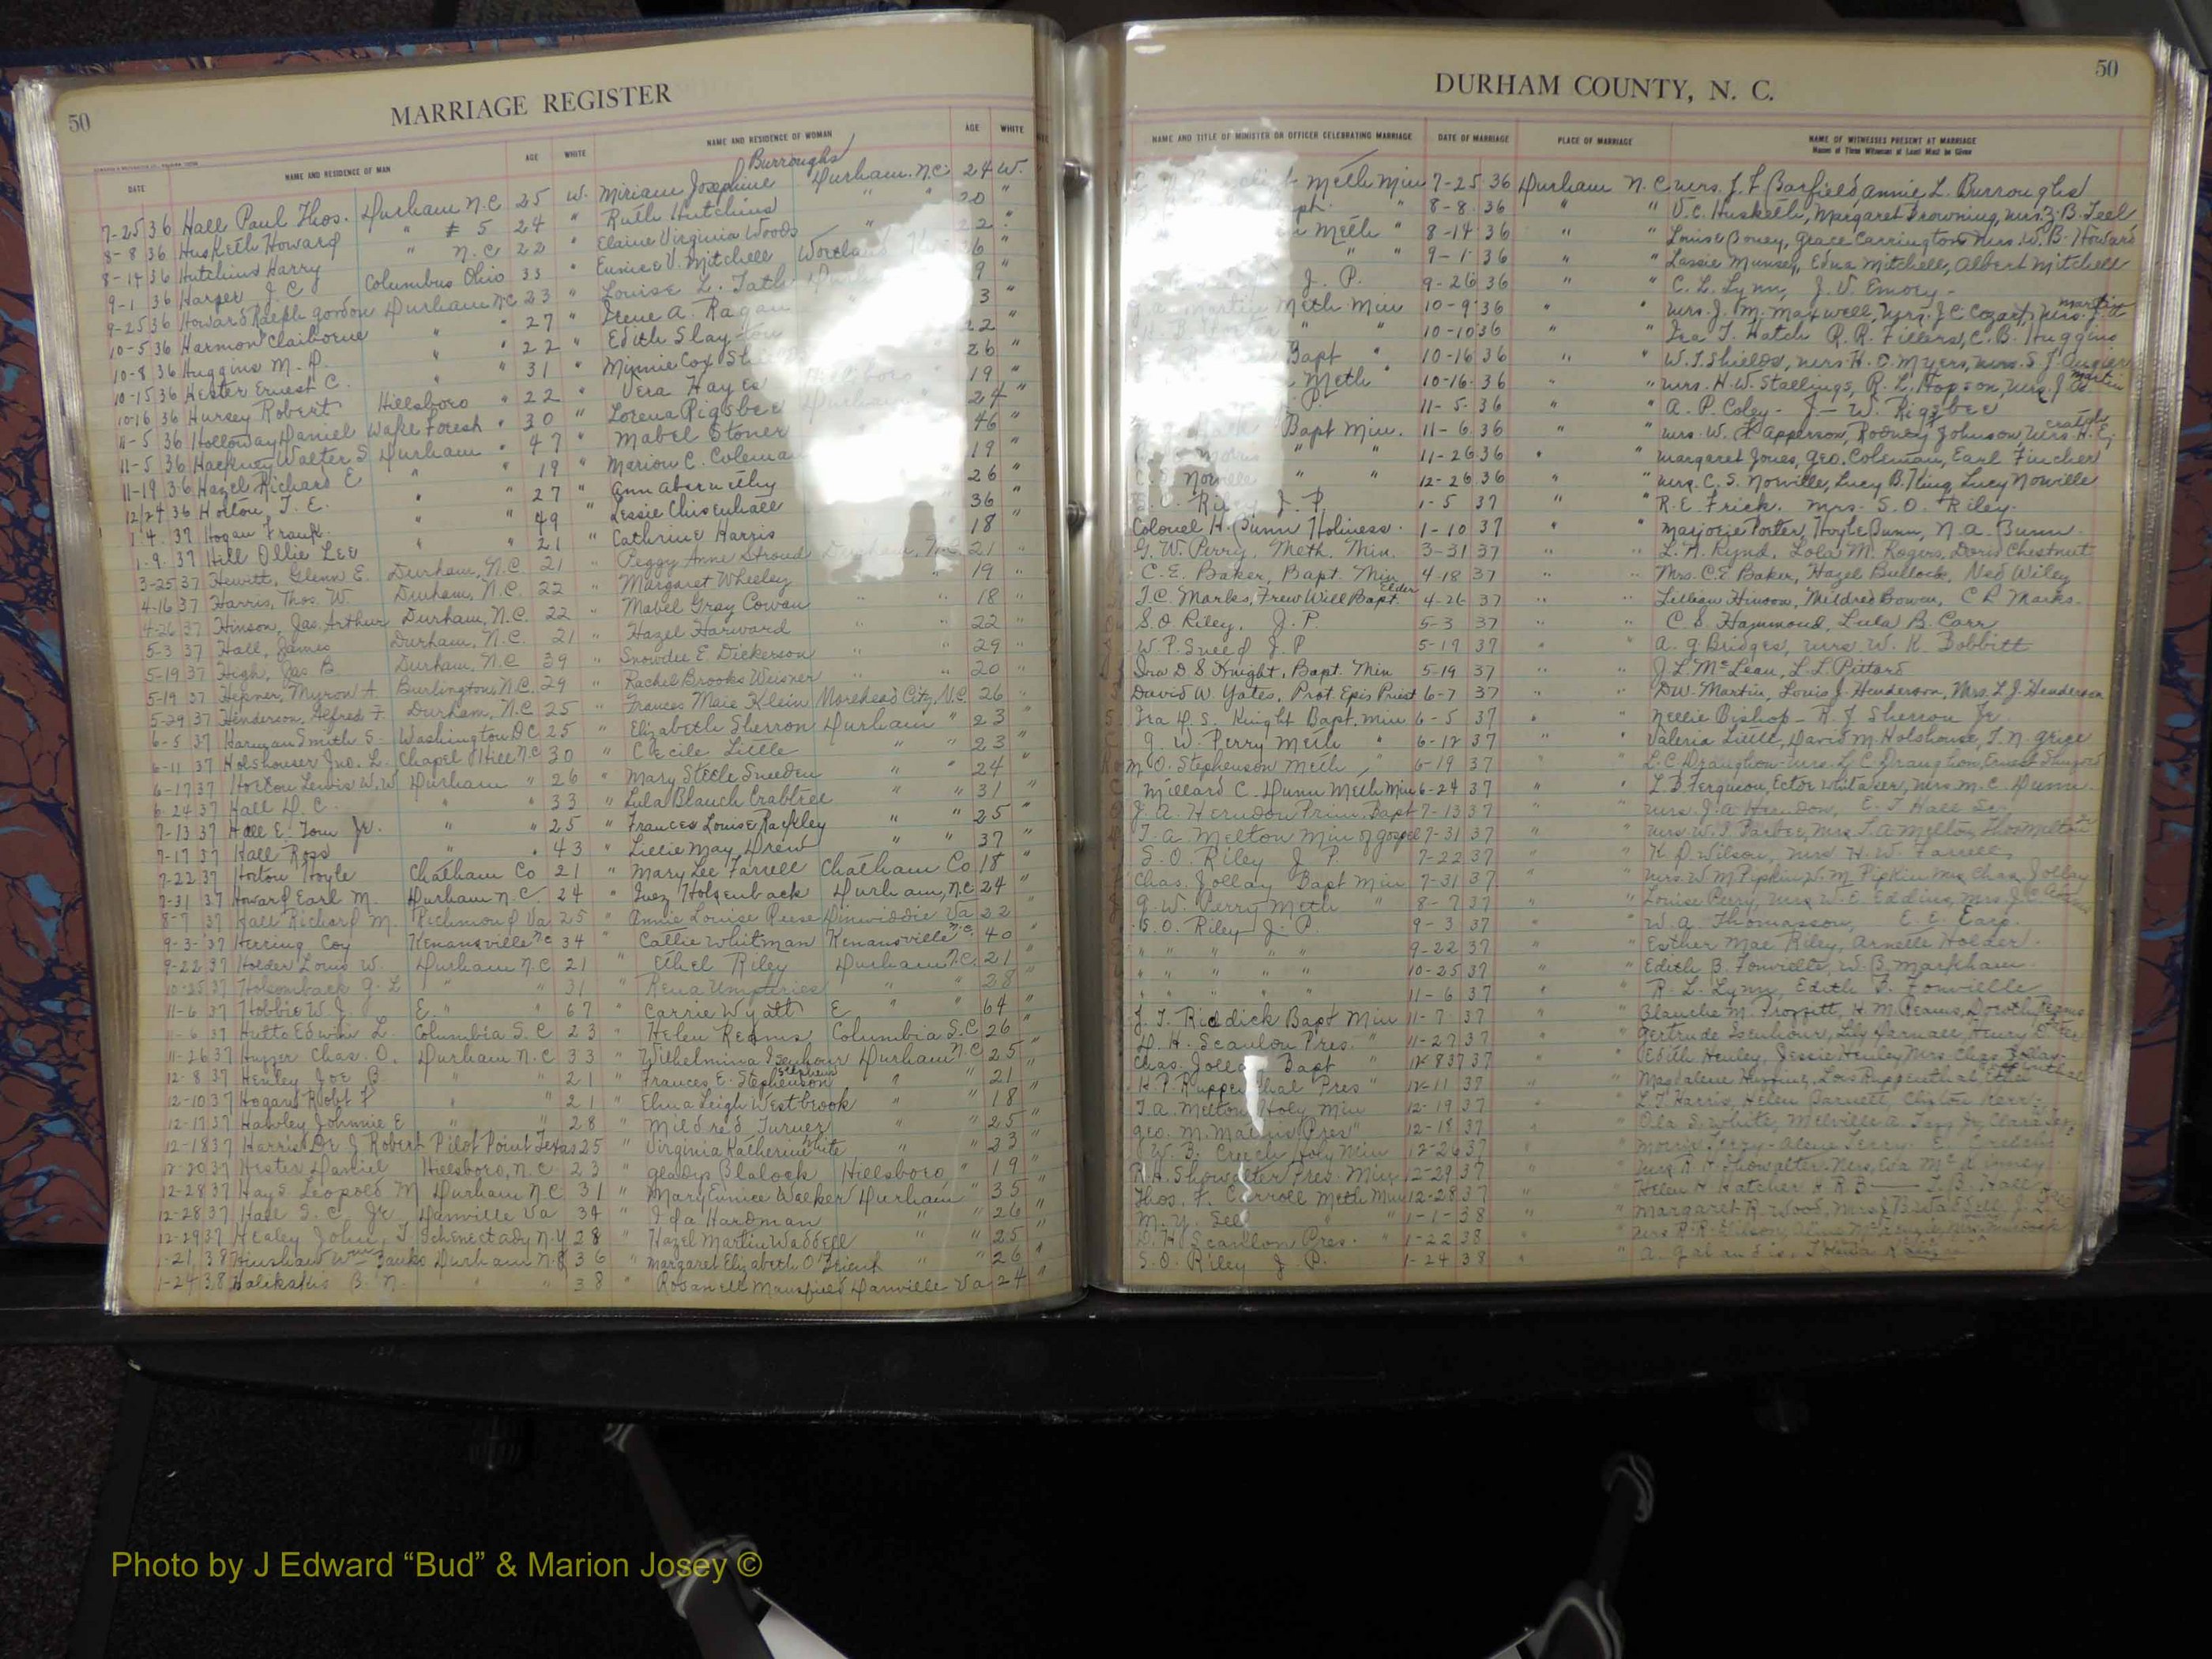 50
MARRIAGE REGISTER
DATE NAME AND RESIDENCE OF MAN AGE WHITE NAME AND RESIDENCE OF WOMAN AGE WHITE
Burroughs
7-25 36 Hall Paul Thos. Durham N.C 25 W. Miriam Josephine Durham. N.C. 24 W.
8-8 36 Husketh Howard " # 5 24 " Ruth Hutchins " " 20 "
8-14 36 Hutchins Harry " N.C 22 " Elaine Virginia Woods " 22 "
9-1 36 Harper J. C Columbus Ohio 33 " Eunice V. Mitchell 26 "
9-25 36 Howard Ralph Gordon Durham N.C 23 " Louise L. 9 "
10-5 36 Harmon Claiborne " " 27 " Irene A. Ragan 3 "
10-8 36 Huggins M. D. " " 22 " Edith 22 "
10-15 36 Hester Ernest C. " " 31 " Minnie Cox 26 "
10-16 36 Hursey Robert Hillsboro " 22 " Vera Hayes Hillsboro " 19 "
11-5 36 Holloway Daniel Wake Forest " 30 " Lorena Rigsbee Durham 24 "
11-5 36 Hackney Walter S Durham " 47 " Mabel Stoner 46 "
11-19 36 Hazel Richard E " " 19 " Marion C. Coleman 19 "
12/24 36 Horton, T. E. " " 27 " Ann Abernethy 26 "
1-4-37 Hogan Frank. " " 49 " Lessie Chisenhall 36 "
1-9-37 Hill Ollie Lee " " 21 " Cathrine Harris 18 "
3-25 37 Hewitt, Glenn E. Durham, N.C. 21 " Peggy Anne Stroud Durham, N.C. 21 "
4-16 37 Harris, Thos. W. Durham, N.C. 22 " Margaret Wheeley " 19 "
4-26 37 Hinson, Jas. Arthur Durham, N.C. 22 " Mabel Gray Cowan " " 18 "
5-3 37 Hall, James Durham, N.C. 21 " Hazel Harward " " 22 "
5-19 37 High, Jas. B Durham, N.C 39 " Snowdie E. Dickerson " " 29 "
5-19 37 Hepner, Myron A. Burlington, N.C. 29 " Rachel Brooks Weisner " " 20 "
5-29 37 Henderson, Alfred F. Durham, N.C 25 " Frances Maie Klein Morehead City, N.C. 26 "
6-5 37 Harman Smith S. Washington DC 25 " Elizabeth Sherron Durham " 23 "
6-11 37 Holshouser Jno. L. Chapel Hill N.C 30 " Cecile Little " " 23 "
6-17 37 Horton Lewis W.W Durham " 26 " Mary Steele Sneeden " " 24 "
6-24 37 Hall D. C. " " 33 " Lula Blanch Crabtree " " 31 "
7-13 37 Hall E. Tom Jr. " " 25 " Frances Louise Rackley " " 25 "
7-17 37 Hall Ross " " 43 " Lillie May Drew " " 37 "
7-22 37 Horton Hoyle Chatham Co 21 " Mary Lee Farrell Chatham Co 18 "
7-31 37 Howard Earl M. Durham N.C. 24 " Inez Holsenback Durham, N.C. 24 "
8-7 37 Hall Richard M. Richmond Va 25 " Annie Louise Reese Dinwiddie Va 22 "
9-3-37 Herring Coy Kenansville N.C 34 " Callie Whitman Kenansville N.C. 40 "
9-22 37 Holder Louis W. Durham N.C 21 " Ethel Riley Durham N.C. 21 "
10-25 37 Holsomback G. L " " 31 " Rena Umpheries " " 28 "
11-6 37 Hobbie W. J. E. " " 67 " Carrie Wyatt E " " 64 "
11-6 37 Hutto Edwin L. Columbia S.C 23 " Helen Reams Columbia S.C. 26 "
11-26 37 Chas. O. Durham N.C 33 " Wilhelmina Isenhour Durham N.C 25 "
12-8 37 Henley Joe B. " " 21 " Frances E. Stephenson " 21 "
12-10 37 Hogan Robt F " " 21 " Elma Leigh Westbrook " 18 "
12-17 37 Johnnie E " " 28 " Mildred Turner " " 25 "
12-18 37 Harris Dr J Robert Pilot Point Texas 25 " Virginia Katherine White " " 23 "
12-20 37 Hester Daniel Hillsboro, N.C 23 " Gladys Blalock Hillsboro " 19 "
12-28 37 Hays Leopold M Durham N.C. 31 " Mary Eunice Walker Durham " 35 "
12-28 37 Hall S. C. Jr. Danville Va 34 " Ida Hardman " " 26 "
12-29 37 Healey John T Schenectady N.Y 28 " Hazel Martin Waddell " " 25 "
1-21 38 Hinshaw Wm Banks Durham N.C 36 " Margaret Elizabeth O'Brient " " 26 "
1-24 38 B. N. " " 38 " Rosanell Mansfield Danville Va 24 "
50
DURHAM COUNTY, N. C.
NAME AND TITLE OF MINISTER OR OFFICER CELEBRATING MARRIAGE DATE OF MARRIAGE PLACE OF MARRIAGE NAME OF WITNESSES PRESENT AT MARRIAGE
Names of Three Witnesses at Least Must be Given
Meth Min 7-25-36 Durham N.C Mrs. J. F Barfield, Annie L. Burroughs
" 8-8-36 " " V.C. Husketh, Margaret Browning, Mrs. Z. B. Teel
Meth " 8-14 36 " " Louise Boney, Grace Carrington Mrs. W. B. Howard
" " 9-1-36 " Lassie Munsey, Edna Mitchell, Albert Mitchell
J. P. 9-26 36 " " C. L. Lynn, J. V. Emory-
Martin Meth Min 10-9-36 " " Mrs. J. M. Maxwell, Mrs. J C Cozart, Mrs. J. A Martin
" " 10-10 36 " " Ira T. Hatch R. R. Fillers, C. B. Huggins
Bapt " 10-16 36 " " W. T. Shields, Mrs. H. D Myers, Mrs. S. J. Angier
Meth " 10-16-36 " " Mrs. H. W. Stallings, R. L. Hopson, Mrs. J A. Martin
P. 11-5-36 " " A. P. Coley- J- W. Rigsbee
Bapt Min. 11-6 36 " " Mrs. W. L Apperson, Rodney Johnson, Mrs. H. E.
" " 11-26 36 " " Margaret Jones, Geo. Coleman, Earl Fincher
C. S. Norville " " 12-26 36 " Mrs. C. S. Norville, Lucy B. King Lucy Norville
S. O. Riley J. P. 1-5 37 " " R. E. Frick. Mrs. S. O. Riley.
Colonel H. Bunn Holiness. 1-10 37 " " Marjorie Porter, Hoyle Bunn, N. A. Bunn
G. W. Perry, Meth. Min. 3-31 37 " " L. A. Rynd, Lola M. Rogers, Doris Chestnut
C. E. Baker, Bapt. Min 4-18 37 " " Mrs. C. E Baker, Hazel Bullock, Ned Wiley
T. C. Marks, Free Will Bapt. Elder 4-26 37 " " Lillian Hinson, Mildred Bowen, C R Marks.
S. O Riley, J. P. 5-3 37 " " C. S. Hammond, Lula B. Carr
W. P. Sneed J. P 5-17 37 " " A. G Bridges, Mrs. W. K. Bobbitt
Ira D S Knight, Bapt. Min 5-19 37 " " J L. McLean, L. L Pittard
David W. Yates, Prot. Epis Priest 6-7 37 " " D.W. Martin, Louis J. Henderson, Mrs. L. J. Henderson
Ira D. S. Knight Bapt. Min 6-5 37 " " Nellie Bishop - R. J Sherron Jr.
G. W. Perry Meth " 6-12 37 " " Valeria Little, David M Holshouse, T. N. Grice
M. O. Stephenson Meth " 6-19 37 " " L. C. Draughon - Mrs. L. C. Draughon,
Millard C. Dunn Meth Min 6-24 37 " " L. D. Ferguson, Ector Whitaker, Mrs. M. C. Dunn
J. A. Herndon Prim. Bapt 7-13 37 " " Mrs. J. A Herndon, E. T Hall Sr.
T. A Melton Min of Gospel 7-31 37 " " Mrs. W. T. Farber, Mrs T. A Melton, Thos Melton Jr
S. O. Riley J. P. 7-22 37 " " K. D. Wilson, Mrs H. W. Farrell,
Chas. Jolley Bapt Min 7-31 37 " " Mrs. W M Pipkin W. M. Pipkin Mrs Chas. Jolley
G. W. Perry Meth " 8-7 37 " " Louise Perry, Mrs W. E Eddins, Mrs J. C.
S. O. Riley J. P. 9-3 37 " " W. A. Thomasson, E. E. Earp.
" " " " 9-22 37 " " Esther Mae Riley, Arnette Holder.
" " " " 10-25 37 " " Edith B. Fonville, W. B. Markham
" " " " 11-6 37 " " R. L. Lynn, Edith B. Fonville
J. T. Riddick Bapt Min 11-7 37 " " Blanche M. Proffitt, H. M Reams, Reams
D. H. Scanlon Pres. " 11-27 37 " " Gertrude Isenhour, Lily
Chas. Jolley Bapt " 12-8 37 37 " " Edith Henley, Jessie Henley Mrs. Chas. Jolley-
H. P. Ruppenthal Pres " 12-11 37 " " Magdalene Lois Ruppenthal
T. A. Melton Holy Min 12-19 37 " " L. T Harris, Helen Barnett, Clifton
Geo. M. Matthis Pres " 12-18 37 " " Ola S. White, Melville
W. B. Creech Holy Min 12-26 37 " " Morris Terry - Alene Terry - E. Creech
R. H. Showalter Pres. Min 12-29 37 " " Mrs. R. H Showalter Mrs.
Thos. F. Carroll Meth Min 12-28 37 " " Helen H Hatcher H R B L. B. Hall
M. Y. Self " " 1-1-38 " " Margaret R. Wood, Mrs J B Waddell,
D. H Scanlon Pres. " 1-22 38 " " Mrs R. R. Wilson,
S. O. Riley J. P. 1-24 38 " "
Photo by J Edward “Bud” & Marion Josey ©